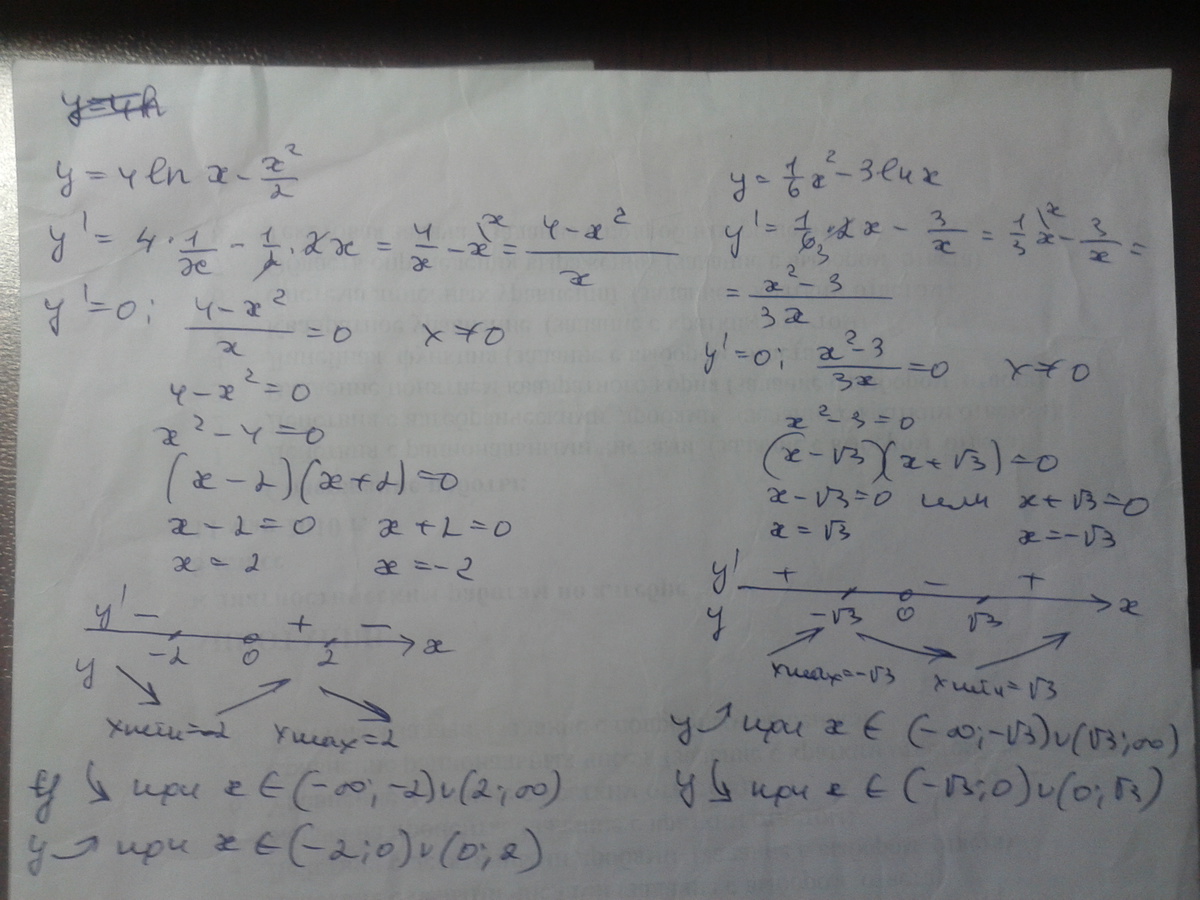 y = 4 ln x - x²/2
y' = 4 · 1/x - 1/2 · 2x = 4/x - x\ˣ = (4 - x²)/x
y' = 0; (4 - x²)/x = 0 x ≠ 0
4 - x² = 0
x² - 4 = 0
(x - 2)(x + 2) = 0
x - 2 = 0 x + 2 = 0
x = 2 x = -2
y' - + -
-2 0 2 x
y
xmin = -2 xmax = 2
y ↘ при x ∈ (-∞; -2) ∪ (2; ∞)
y ↗ при x ∈ (-2; 0) ∪ (0; 2)
y = 1/6 x² - 3 ln x
y' = 1/6 · 2x - 3/x = 1/3 x\ˣ - 3/x =
= (x² - 3)/3x
y' = 0; (x² - 3)/3x = 0 x ≠ 0
x² - 3 = 0
(x - √3)(x + √3) = 0
x - √3 = 0 или x + √3 = 0
x = √3 x = -√3
y' + - +
y -√3 0 √3 x
xmax = -√3 xmin = √3
y ↗ при x ∈ (-∞; -√3) ∪ (√3; ∞)
y ↘ при x ∈ (-√3; 0) ∪ (0; √3)